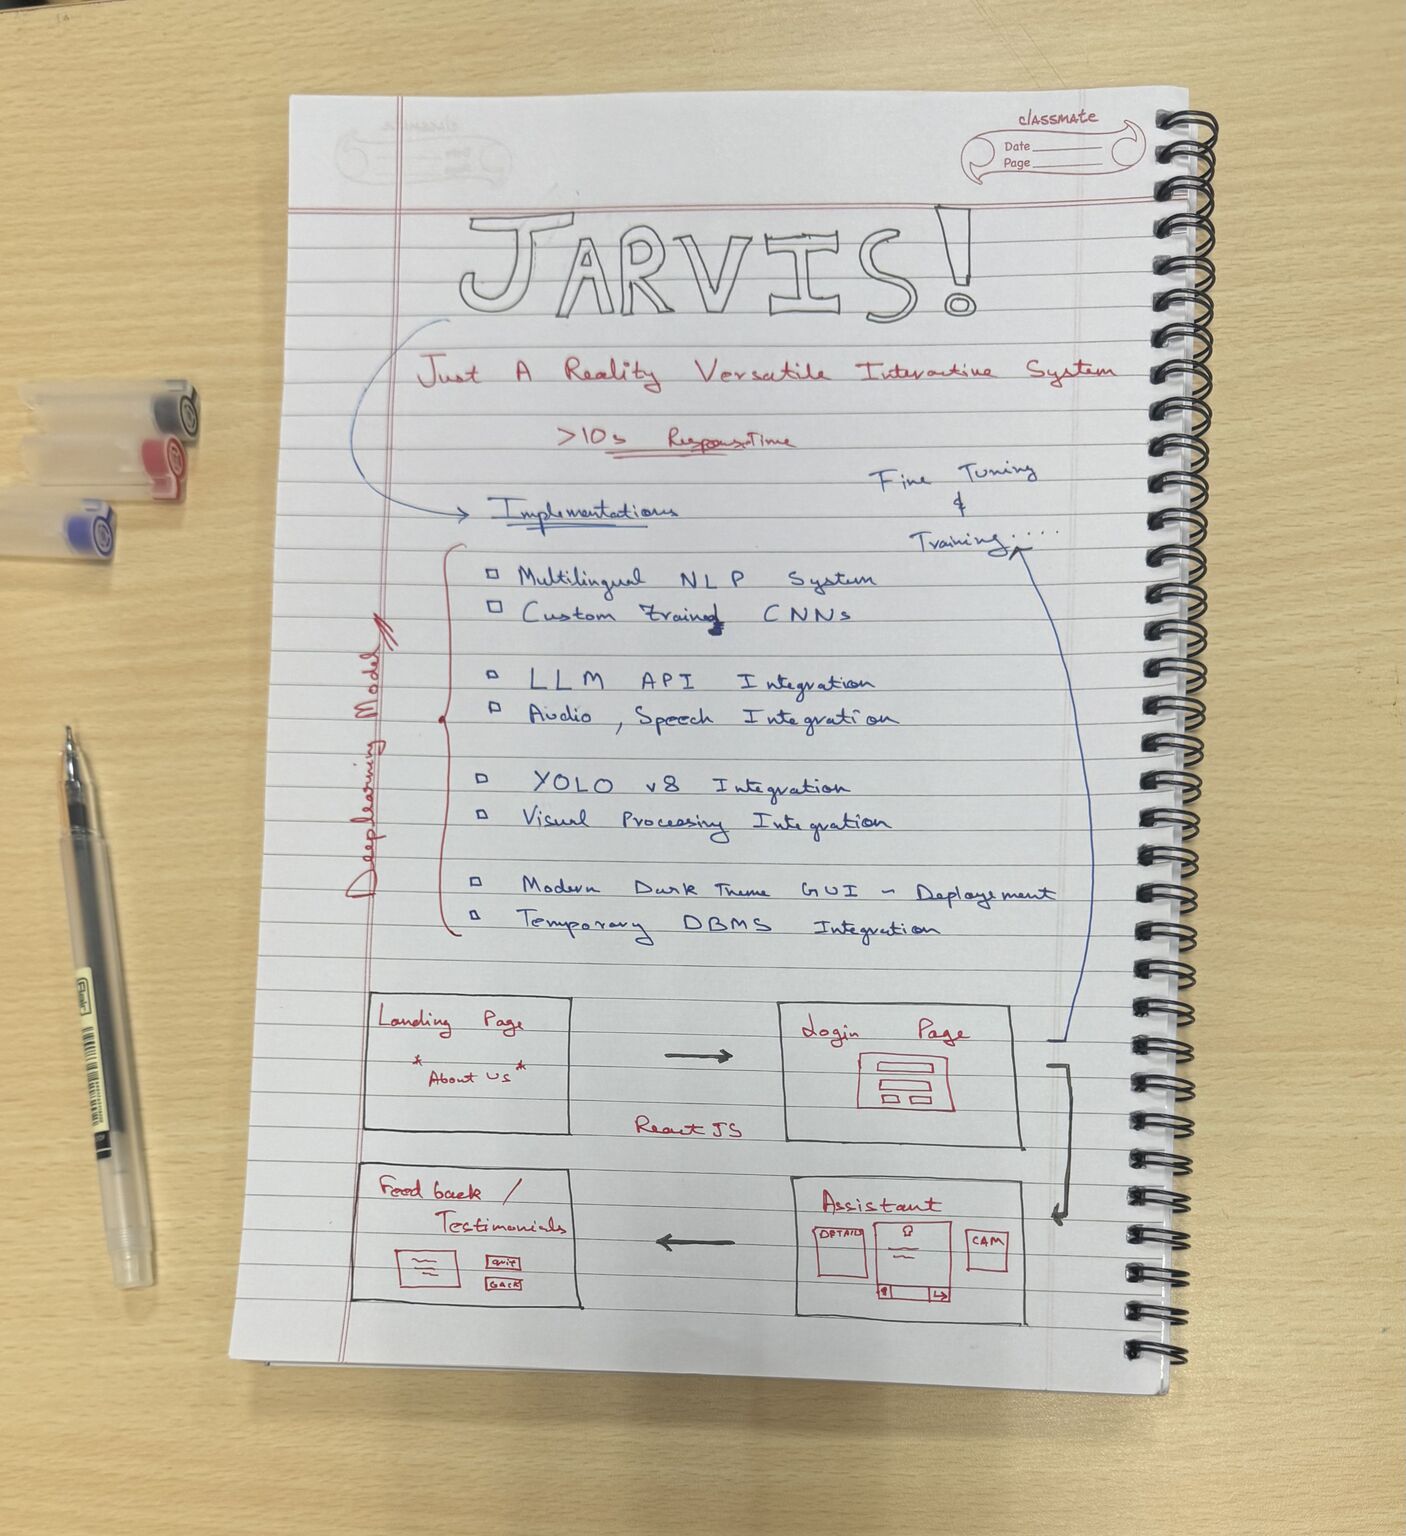 classmate
Date
Page
JARVIS!
Just A Reality Versatile Interactive System
>10s Response Time
Fine Tuning
&
Training.....
Implementations
Deeplearning Model
Multilingual NLP System
Custom trained CNNs
LLM API Integration
Audio, Speech Integration
YOLO v8 Integration
Visual Processing Integration
Modern Dark Theme GUI - Deployement
Temporary DBMS Integration
Landing Page
*About us*
Login Page
React JS
Feedback /
Testimonials
Quit
Back
Assistant
DETAIL
CAM
Flair